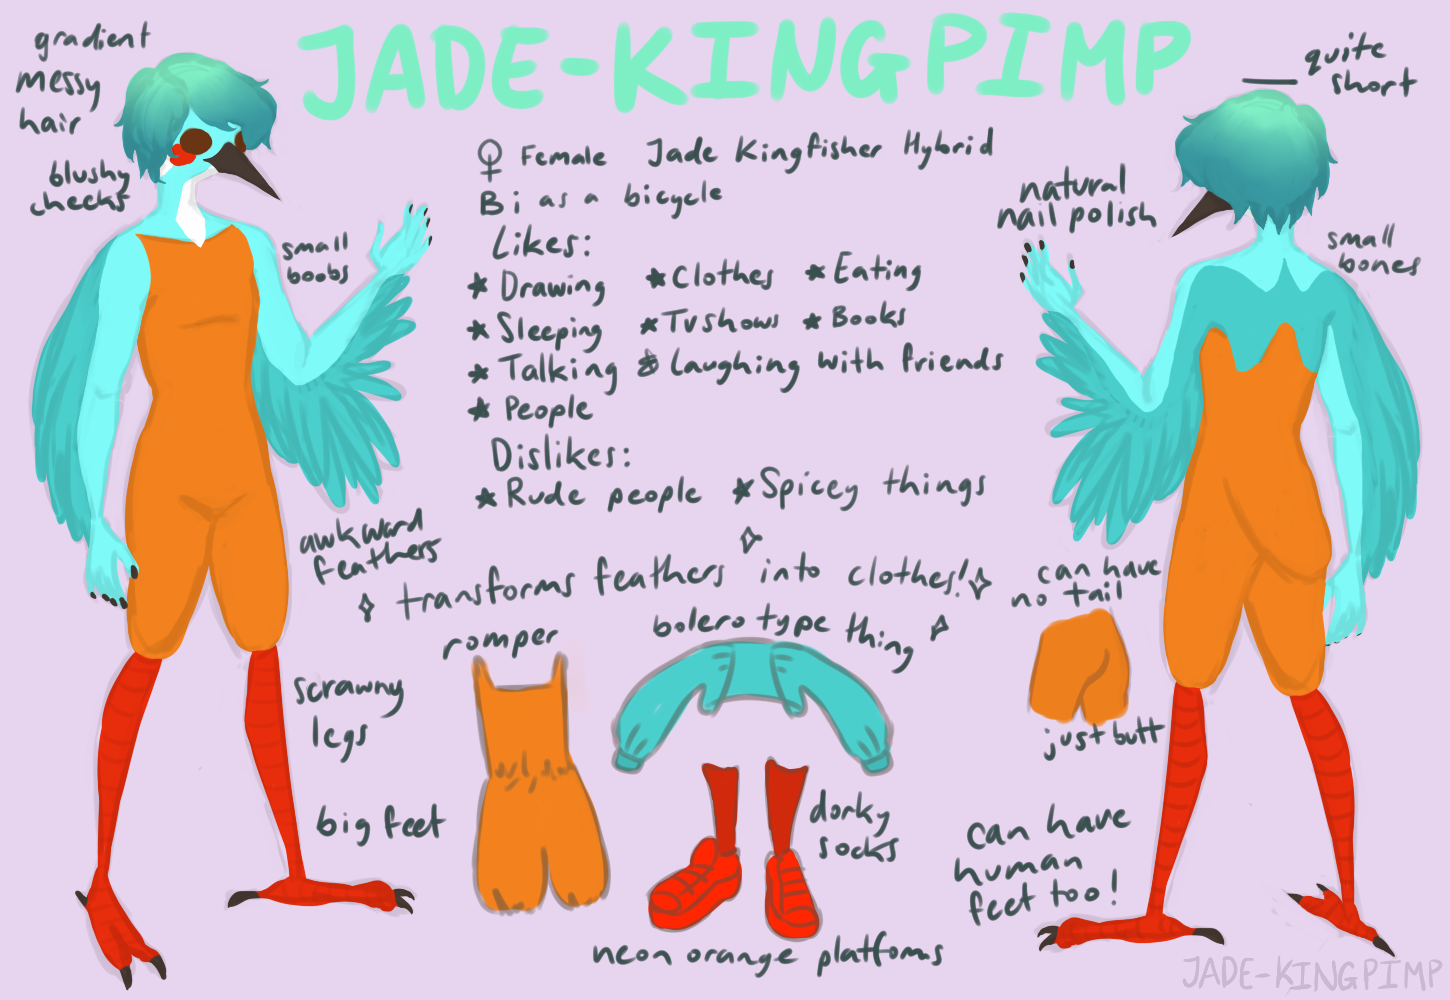 JADE-KINGPIMP
gradient
messy
hair
blushy
checks
small
boobs
♀ Female Jade Kingfisher Hybrid
Bi as a bicycle
Likes:
★ Drawing ★ Clothes ★ Eating
★ Sleeping ★ Tv shows ★ Books
★ Talking & Laughing with friends
★ People
Dislikes:
★ Rude people ★ Spicey things
transforms feathers into clothes!
quite
short
natural
nail polish
small
bones
awkward
feathers
romper
bolero type thing
can have
no tail
just butt
scrawny
legs
big feet
dorky
socks
can have
human
feet too!
neon orange platfoms
JADE-KINGPIMP